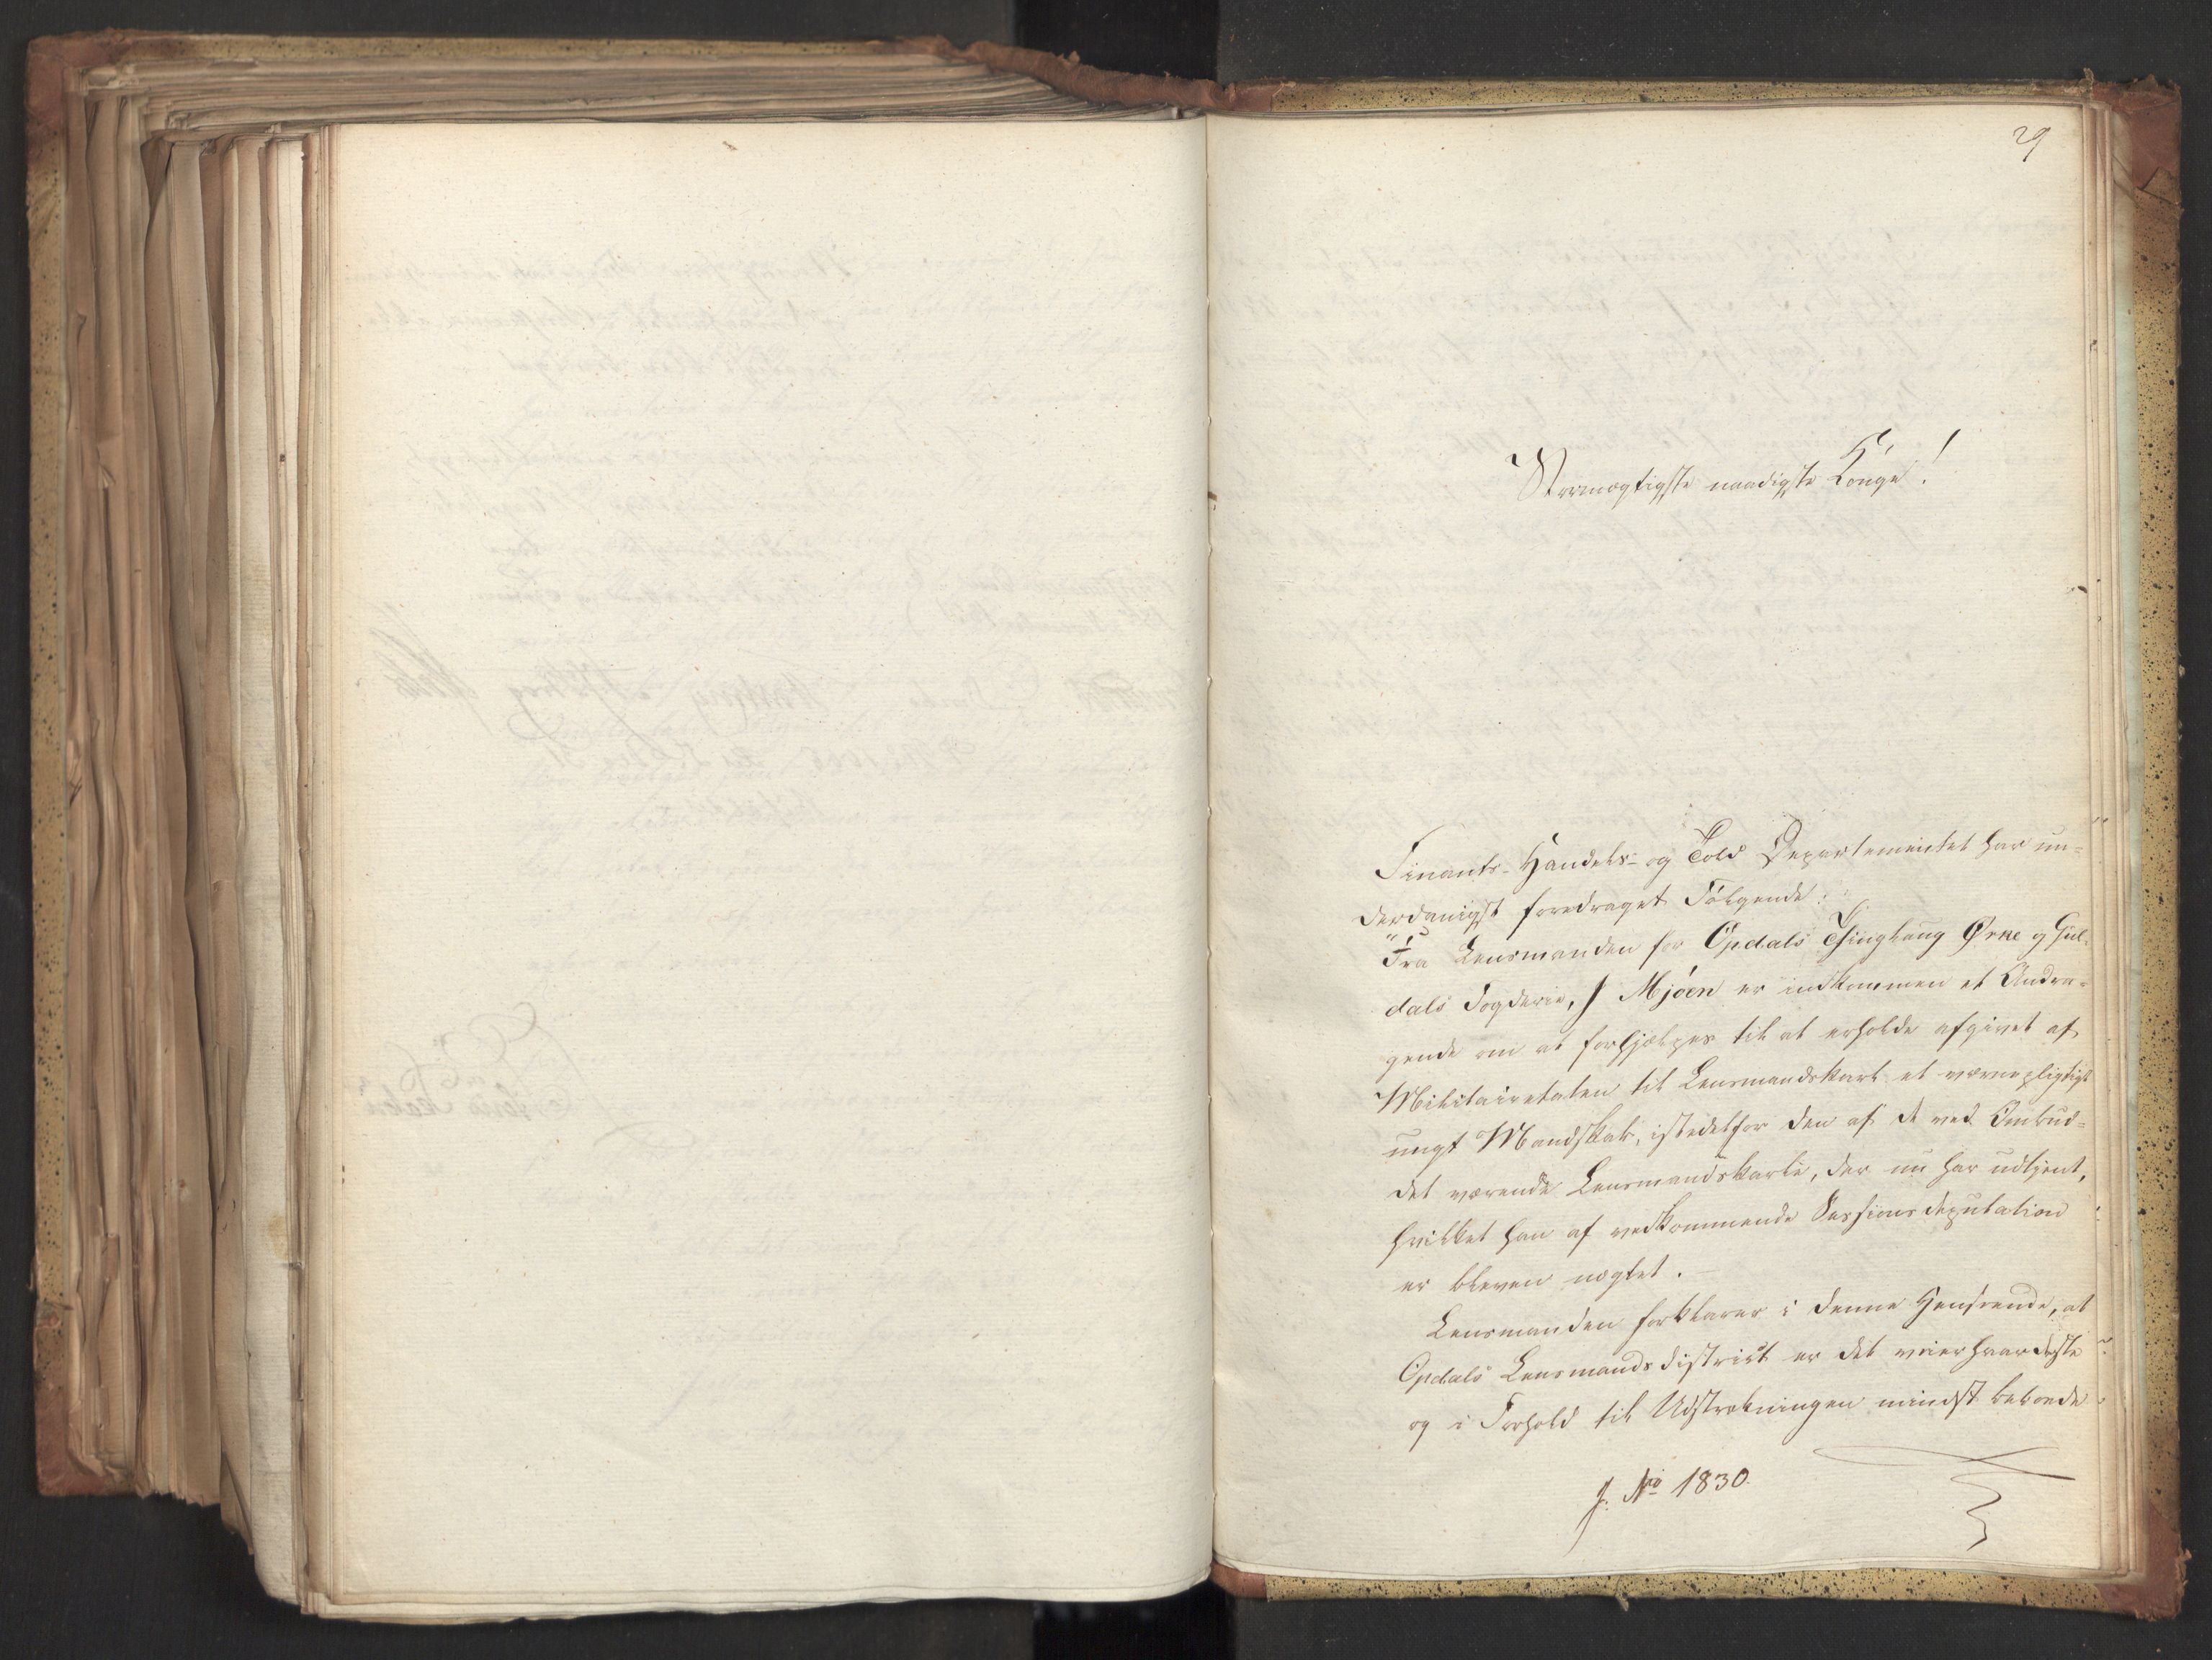 29
Stormægtigste naadigste Konge!
Finants- Handels- og Told Departementet har un-
derdanigst foredraget Følgende:
"Fra Lensmanden for Opdals Thinglaug Ørke og Gul-
dals Fogderie, J Mjøen er indkommen et Andra-
gende om at forhjælpes til at erholde afgivet af
Militairetaten til Lensmandskarl et værnepligtigt
ungt Mandskab, istedetfor den af de ved Ombud-
det værende Lensmandskarle, der nu har udtjent,
hvilket han af vedkommende Sessionsdeputation
er bleven nægtet. —
Lensmanden forklarer i denne Henseende, at
Opdals Lensmandsdistrict er det veierhaardeste
og i Forhold til Udstrækningen mindst beboede
J. No 1830.